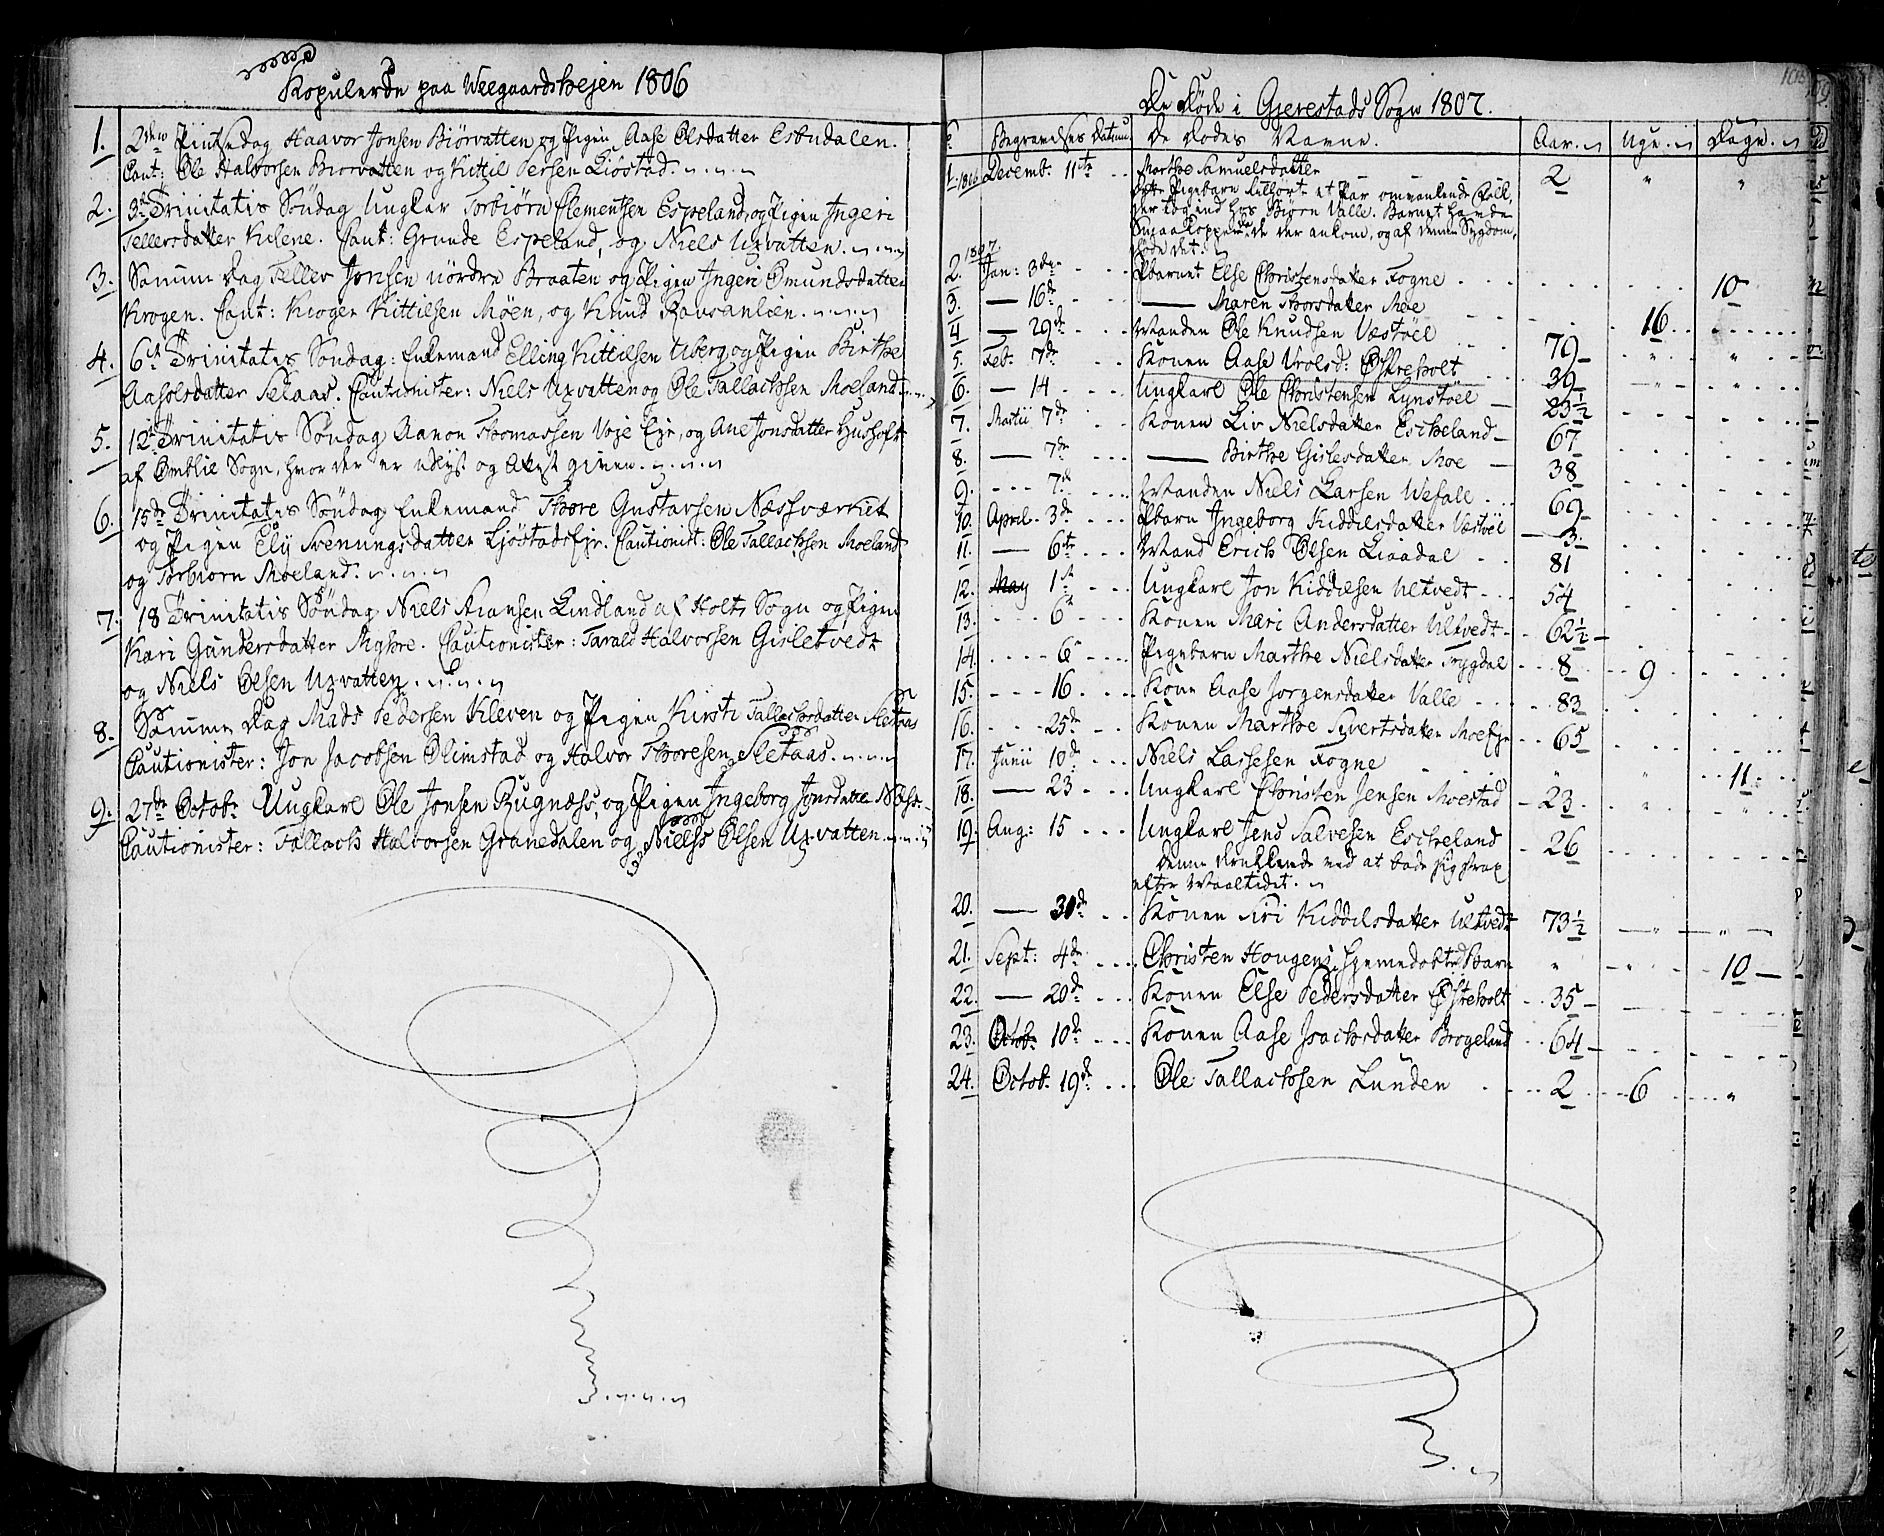 Kopulerede paa Weegaardsheyen 1806
1. 2den Pintsedag Haavor Jonsen Biörvatten og Pigen Aase Olsdatter Esbudalen.
Caut: Ole Halvorsen Biorvatten og Kittil Tersen Liöstad.
2. 3die Trinitatis Söndag Ungkar Torbiörn Clementsen Espeland, og Pigen Ingeri
Tellersdatter Kulene. Caut: Grunde Espeland, og Niels Uxvatten.
3. Samme Dag Tellev Jonsen nördre Braaten og Pigen Ingeri Omundsdatter
Krogen. Caut: Kroger Kittilsen Möen, og Knud Ravsanlien.
4. 6te Trinitatis Söndag: Enkemand Elling Kittilsen Uberg og Pigen Birthe
Aasolsdatter Selaas. Cautionister: Niels Uxvatten og Ole Tallachsen Moeland
5. 12te Trinitatis Söndag Aanon Thomassen Voje Ejr, og Ane Jonsdatter Husholt
af Omblie Sogn, hvor der er udlyst og Akest given.
6. 15de Trinitatis Söndag Enkemand Thore Gustavsen Næssværket
og Pigen Ely Svenungsdatter Ljöstadsejr. Cautionist: Ole Tallachsen Moeland
og Torbiorn Moeland.
7. 18 Trinitatis Söndag Niels Aransen Lindland af Holts Sogn og Pigen
Kari Gundersdatter Myhre. Cautionister: Tarald Halvorsen Gisletvedt
og Niels Olsen Uxvatten.
8. Samme Dag Mads Pedersen Kleven og Pigen Kirsti Tallachsdatter Sletaas
Cautionister: Jon Jacobsen Olimstad og Halvor Thoresen Sletaas.
9. 27de Octobr Ungkarl Ole Jonsen Rugnæs, og Pigen Ingeborg Jonsdatter Næss.
Cautionister: Tallach Halvorsen Granedalen og Nielss Olsen Uxvatten.
De Døde i Gjerestads Sogn 1807.
Begravelses Datum De Dødes Navne. Aar. Uge. Dage.
1. 1806 Decemb. 11te Marthe Samuelsdatter 2 " "
dette Pigebarn tilhørte et Par omvankende Folk,
der tog ind hos Biørn Valle. Barnet havde
Smaakopperne da de der ankom, og af denne Sygdom
døde det.
1807
2. Jan: 3die Pbarnet Else Christensdatter Fogne 10
3. — 16de — Maren Thorsdatter Moe 16
4. — 29de Manden Ole Knudsen Vestöel 79 " "
5. Feb. 7de Konen Aase Vrolsd: Østreholt 39
6. — 14 Ungkarl Ole Christensen Lynstöel 23½
7. Martii 7de Konen Liv Nielsdatter Escheland 67
8. — 7de — Birthe Gislesdatter Moe 38
9. 7de Manden Niels Larsen Wefall 69
10. April 3de Pbarn Ingeborg Kiddilsdatter Vestöl 3
11. — 6te Mand Erich Olsen Liaadal 81
12. May 1ste Ungkarl Jon Kiddilsen Ultvedt 54
13. 6te Konen Mari Andersdatter Ultvedt 62½
14. 6te Pigebarn Marthe Nielsdatter Trygdal 8 9
15. 16 Konen Aase Jorgensdatter Valle 83
16. 25de Konen Marthe Sivertsdatter Moe ejr 65
17. Junii 10de Niels Lassesen Fogne " " 11
18. — 23 Ungkarl Christen Jensen Moestad 23 " "
19. Aug: 15 Ungkarl Jens Salvesen Escheland 26
denne druknede ved at bade sig strax
efter Maaltidet.
20. — 30de Konen Siri Kiddilsdatter Ultvedt 73½ " "
21. Sept: 4de Christen Hougens hiemedøbte Barn " " 10
22. — 20de Konen Else Pedersdatter Østreholt 35
23. Octobr 10de Konen Aase Isachsdatter Brogeland 64
24. Octob. 19de Ole Tallachsen Lunden 2 6 "